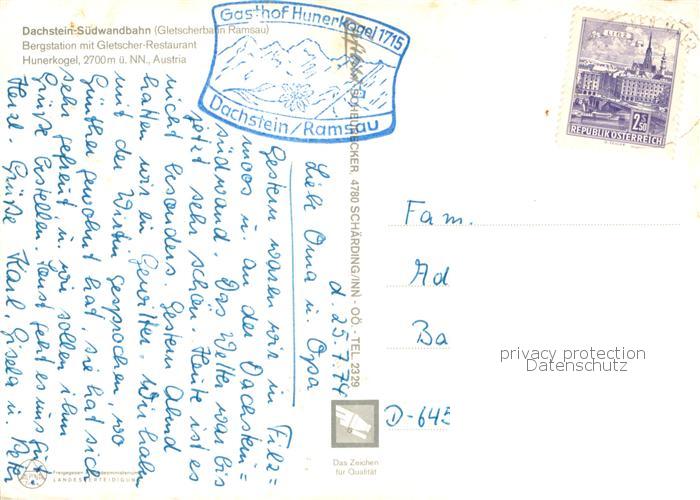 Dachstein-Südwandbahn (Gletscherbahn Ramsau)
Bergstation mit Gletscher-Restaurant
Hunerkogel, 2700 m ü. NN., Austria
Gasthof Hunerkogel 1715
Dachstein/Ramsau
LINZ
2.50
REPUBLIK ÖSTERREICH
d. 25.7.74
Liebe Oma u. Opa
Gestern waren wir in Filz=
moos u. an der Dachstein=
südwand. Das Wetter war bis
jetzt sehr schön. Heute ist es
nicht besonders. Gestern Abend
hatten wir ein Gewitter. Wir haben
mit der Wirtin gesprochen, wo
Günther gewohnt hat, sie hat sich
sehr gefreut u. wir sollen ihm
Grüße bestellen. Sonst geht es uns gut.
Herzl. Grüße Karl, Gisela u. Peter
4780 SCHÄRDING/INN - OÖ - TEL. 23 29
Fam.
Ad
Ba
D-645
privacy protection
Datenschutz
Das Zeichen
für Qualität
LANDESVERTEIDIGUNG